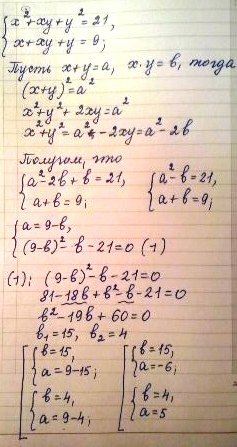 { x²+xy+y²=21,
x+xy+y=9;
Пусть x+y=a, x·y=b, тогда
(x+y)²=a²
x²+y²+2xy=a²
x²+y²=a²-2xy=a²-2b
Получим, что
{ a²-2b+b=21, { a²-b=21,
a+b=9; a+b=9;
{ a=9-b,
(9-b)²-b-21=0 (1)
(1): (9-b)²-b-21=0
81-18b+b²-b-21=0
b²-19b+60=0
b₁=15, b₂=4
[ { b=15, [ { b=15,
a=9-15; a=-6;
{ b=4, { b=4,
a=9-4; a=5